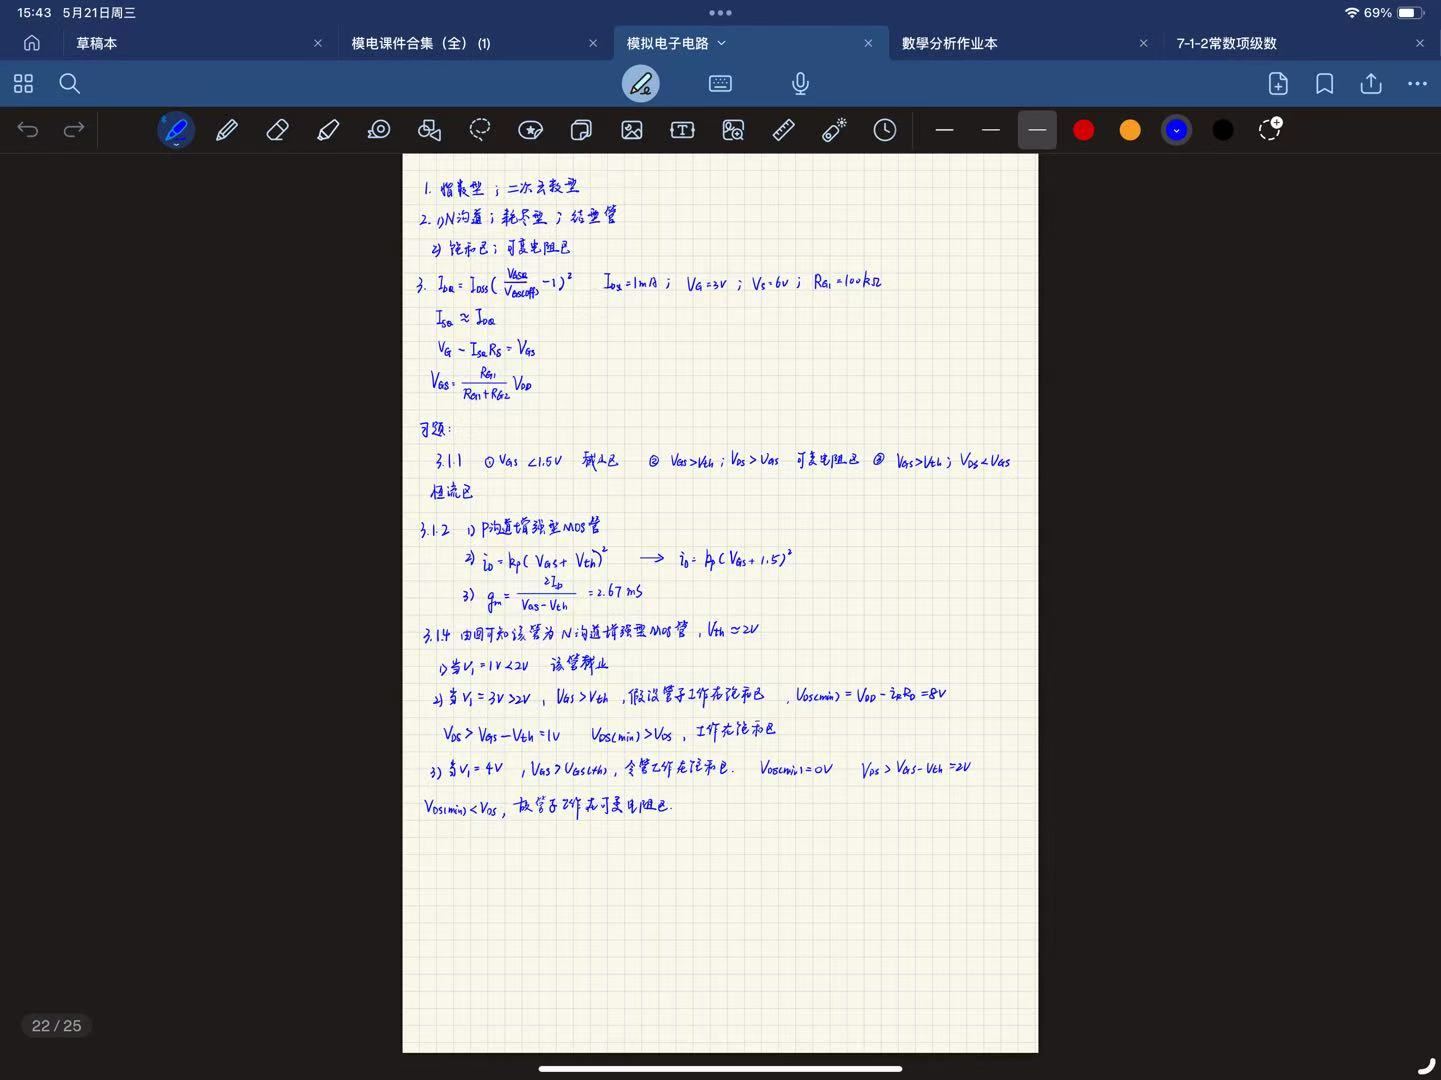 15:43 5月21日周三
69%
草稿本
模电课件合集（全） (1)
模拟电子电路
數學分析作业本
7-1-2常数项级数
1. 指数型 ; 二次函数型
2. 1) N沟道 ; 耗尽型 ; 结型管
2) 饱和区 ; 可变电阻区
3. I_DQ = I_DSS ( V_GSQ / V_GS(off) - 1 )² I_DQ = 1mA ; V_G = 3V ; V_S = 6V ; R_G1 = 100kΩ
I_SQ ≈ I_DQ
V_G - I_SQ R_S = V_GS
V_GS = R_G1 / (R_G1 + R_G2) V_DD
习题:
3.1.1 ① V_GS < 1.5V 截止区 ② V_GS > V_th ; V_DS > V_GS 可变电阻区 ③ V_GS > V_th ; V_DS < V_GS
恒流区
3.1.2 1) P沟道增强型MOS管
2) i_D = k_p ( V_GS + V_th )² → i_D = k_p ( V_GS + 1.5 )²
3) g_m = 2I_D / (V_GS - V_th) = 2.67 mS
3.1.4 由图可知该管为 N沟道增强型MOS管 , V_th ≈ 2V
1) 当 V_1 = 1V < 2V 该管截止
2) 当 V_1 = 3V > 2V , V_GS > V_th , 假设管子工作在饱和区 , V_DS(min) = V_DD - i_R R_D = 8V
V_DS > V_GS - V_th = 1V V_DS(min) > V_DS , 工作在饱和区
3) 当 V_1 = 4V , V_GS > V_GS(th) , 令管工作在饱和区 . V_DS(min) = 0V V_DS > V_GS - V_th = 2V
V_DS(min) < V_DS , 故管子工作在可变电阻区.
22 / 25